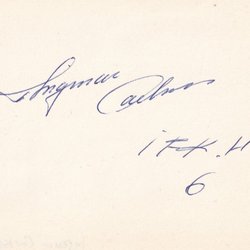 Ingmar Carlsson
IFK.H
6